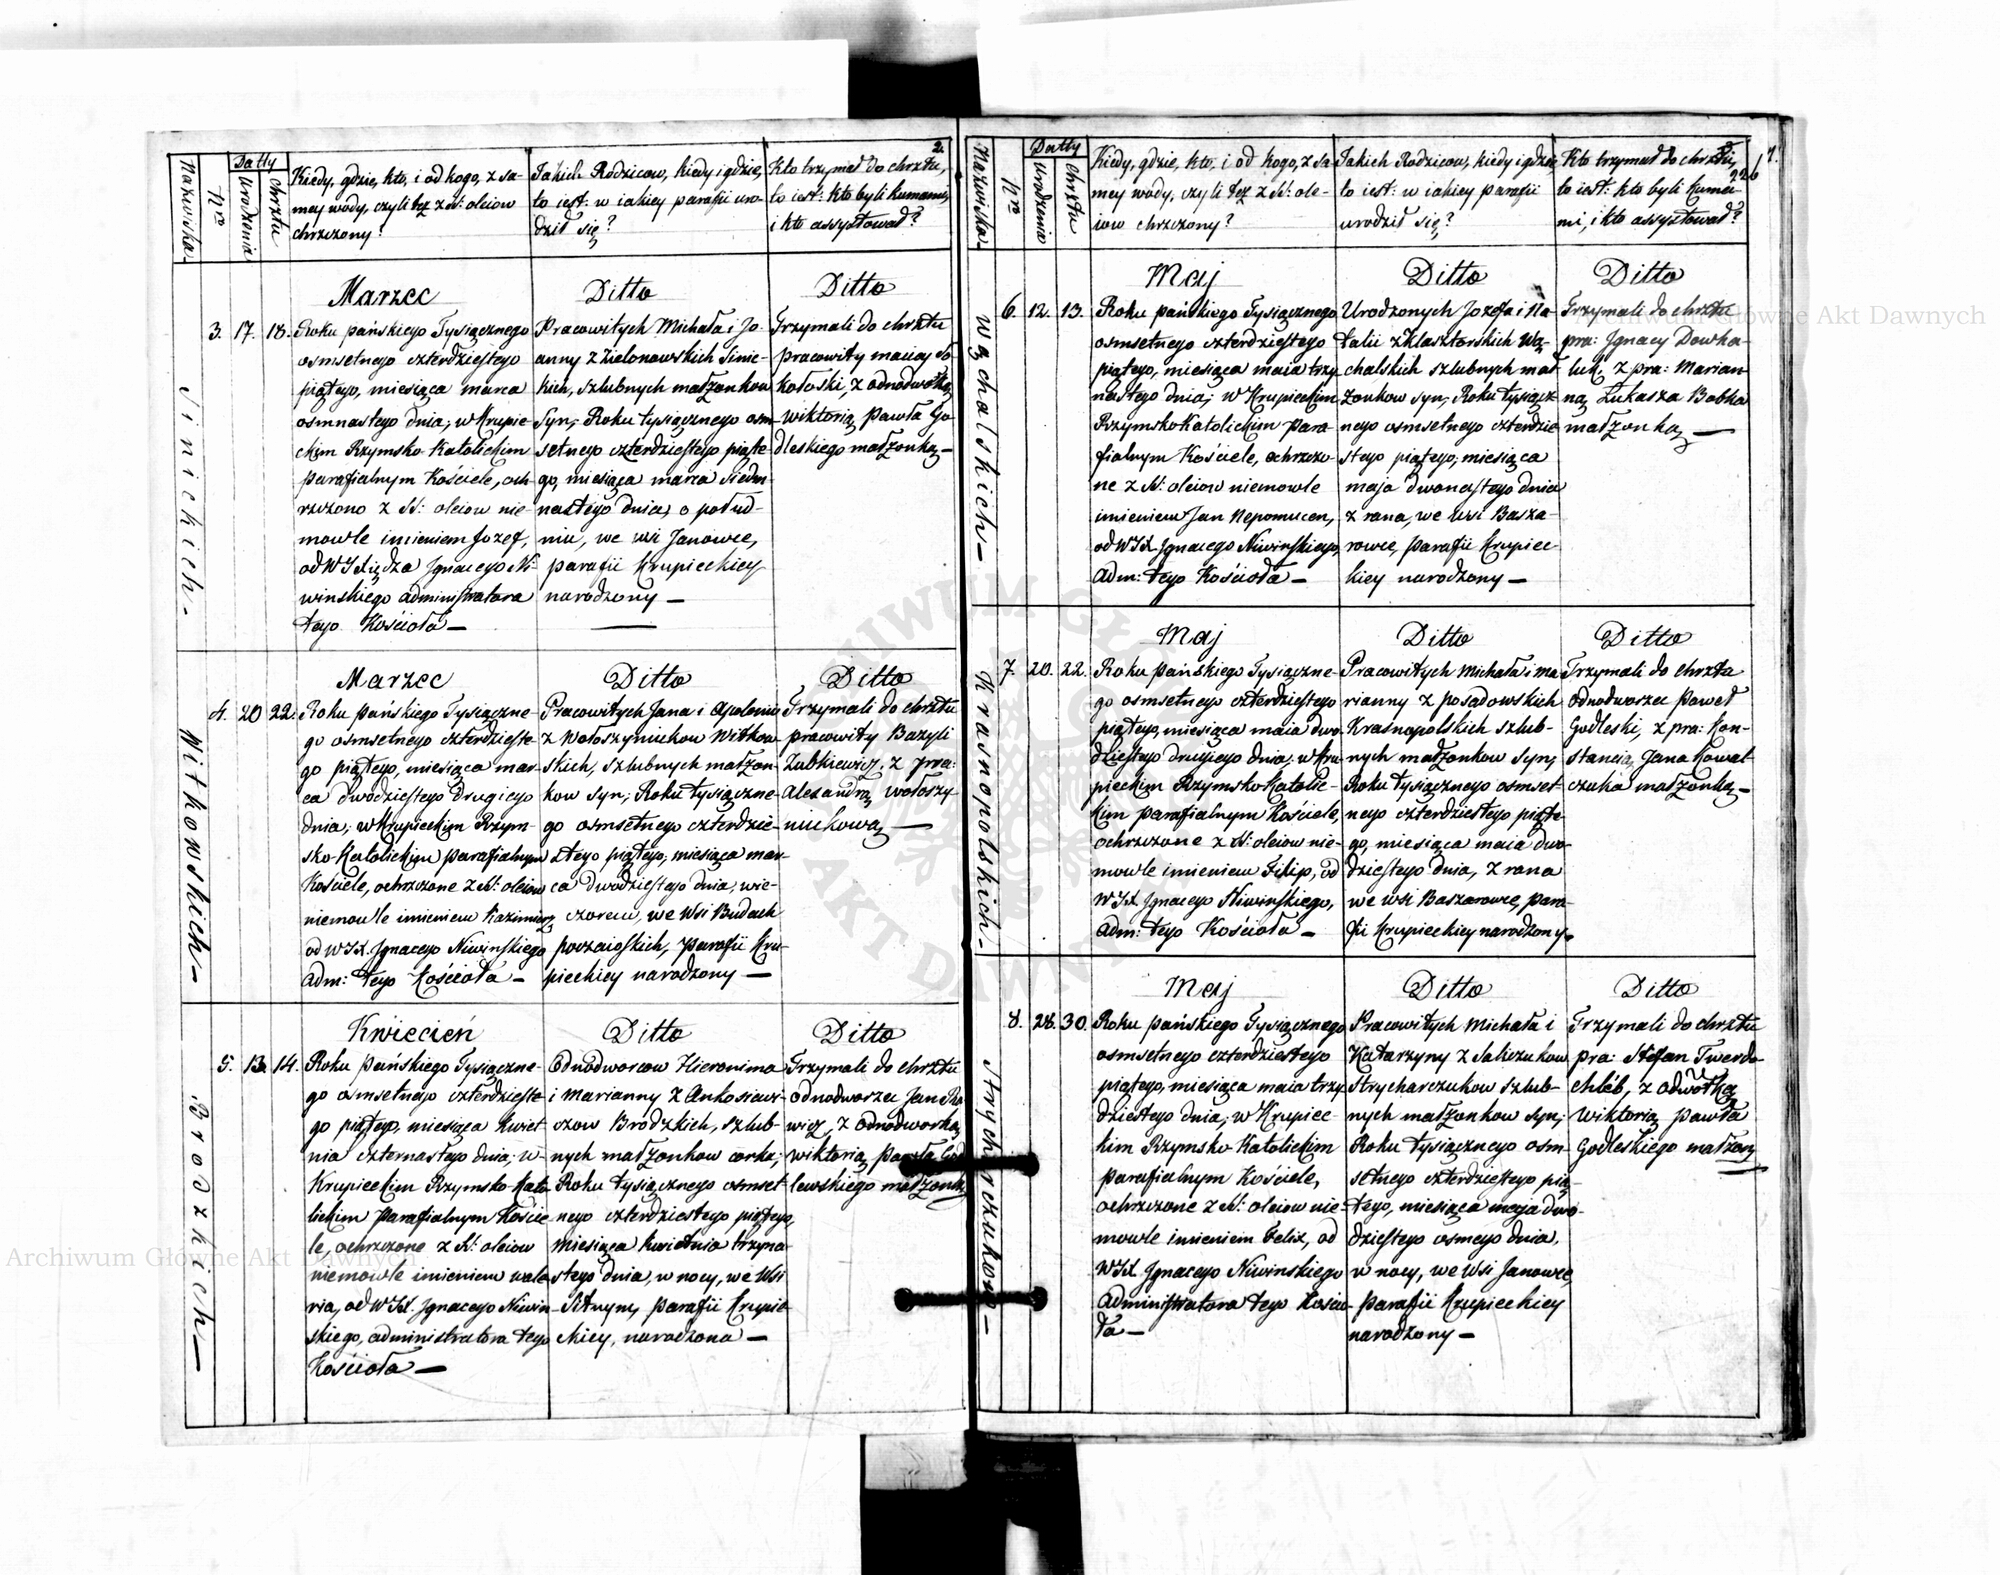 2.
Nazwiska
Nro
Datty
Urodzenia
Chrztu
Kiedy, gdzie, kto, i od kogo, z sa-
mey wody, czyli też z SS: oleiow
chrzczony?
Jakich Rodzicow, kiedy i gdzie,
to iest: w iakiey parafii uro-
dził się?
Kto trzymał do chrztu,
to iest: kto byli kumami,
i kto assystował?
Sinickich-
3. 17. 18.
Marzec
Roku pańskiego Tysiącznego
osmsetnego czterdziestego
piątego, miesiąca marca
osmnastego dnia; w Krupie-
ckim Rzymsko Katolickim
parafialnym Kościele, och-
rzczono z SS: oleiow nie-
mowle imieniem Jozef,
od WJXiędza Jgnacego Ni-
winskiego administratora
tego Kościoła-
Ditto
Pracowitych Michała i Jo-
anny z Zielonowskich Sinic-
kich, szlubnych małżonkow
Syn; Roku tysiącznego osm-
setnego czterdziestego piąte-
go, miesiąca marca siedm-
nastego dnia, o połud-
niu, we wsi Janowce,
parafii Krupieckiey
narodzony-
Ditto
Trzymali do chrztu
pracowity Maciay So-
kołoski, z odnodworką
Wiktorią Pawła Go-
dleskiego małżonką-
Witkowskich-
4. 20 22.
Marzec
Roku Pańskiego Tysiączne-
go osmsetnego czterdzieste-
go piątego, miesiąca mar-
ca dwodziestego drugiego
dnia; w Krupieckim Rzym-
sko-Katolickim parafialnym
Kościele, ochrzczone z SS: oleiow
niemowle imieniem Kazimierz
od WJX. Jgnacego Niwinskiego
Adm: tego Kościoła-
Ditto
Pracowitych Jana i Apolonii
z Wołoszyniukow Witkow-
skich, szlubnych małżon-
kow syn; Roku tysiączne-
go osmsetnego czterdzie-
stego piątego, miesiąca mar-
ca dwodziestego dnia, wie-
czorem, we Wsi Budach
poczaioskich, parafii Kru-
pieckiey narodzony-
Ditto
Trzymali do chrztu
pracowity Bazyli
Zubkiewicz, z prca:
Alexandrą Wołoszy-
niukową-
Brodzkich-
5. 13. 14.
Kwiecień
Roku Pańskiego Tysiączne-
go osmsetnego czterdzieste-
go piątego, miesiąca kwiet
nia czternastego dnia; w
Krupieckim Rzymsko-Kato
lickim Parafialnym Koście
le, ochrzczone z SS: oleiow
niemowle imieniem Wale
ria, od WJX. Jgnacego Niwin-
skiego, administratora tego
Kościoła-
Ditto
Odnodworcow Hieronima
i Marianny z Ankosiewi-
czow Brodzkich, szlub-
nych małżonkow corka;
Roku tysiącznego osmset-
nego czterdziestego piątego,
miesiąca kwietnia trzyna-
stego dnia, w nocy, we Wsi
Sitnyny, parafii Krupie-
ckiey, narodzona-
Ditto
Trzymali do chrztu
odnodworzec Jan
wicz, z odnodworką
Wiktorią Pawła God
lewskiego małżonką
Nazwiska
Nro
Datty
Urodzenia
Chrztu
Kiedy, gdzie, kto, i od kogo, z sa-
mey wody, czyli też z SS: ole-
iow chrzczony?
Jakich Rodzicow, kiedy i gdzie,
to iest: w iakiey parafii
urodził się?
Kto trzymał do chrztu,
to iest: kto byli kuma-
mi, i kto assystował?
Wąchalskich-
6. 12. 13.
Maj
Roku pańskiego Tysiącznego
osmsetnego czterdziestego
piątego, miesiąca maia trzy
nastego dnia; w Krupieckim
Rzymsko Katolickim Para-
fialnym Kościele, ochrzczo-
ne z SS: oleiow niemowle
imieniem Jan Nepomucen,
od WJX. Jgnacego Niwinskiego,
Adm: tego Kościoła-
Ditto
Urodzonych Jozefa i Na-
talii z Klasztorskich Wą-
chalskich szlubnych mał
żonkow syn; Roku tysiącz
nego osmsetnego czterdzie
stego piątego, miesiąca
maja dwonastego dnia
z rana, we wsi Basza-
rowce, parafii Krupiec
kiey narodzony-
Ditto
Trzymali do chrztu
pra: Jgnacy Dowha-
luk, z pra: Marian-
ną Łukasza Bobka
małżonką-
Krasnopolskich-
7. 20. 22.
Maj
Roku Pańskiego Tysiączne-
go osmsetnego czterdziestego
piątego, miesiąca maia dwo
dziestego drugiego dnia; w Kru
pieckim Rzymsko-Katolic-
kim parafialnym Kościele,
ochrzczone z SS: oleiow nie-
mowle imieniem Filip, od
WJX Jgnacego Niwinskiego,
Adm: tego Kościoła-
Ditto
Pracowitych Michała i Ma
rianny z Posądowskich
Krasnopolskich szlub-
nych małżonkow Syn;
Roku tysiącznego osmset-
nego czterdziestego piąte-
go, miesiąca maia dwo-
dziestego dnia, z rana
we wsi Baszarowce, para-
fii Krupieckiey narodzony-
Ditto
Trzymali do chrztu
Odnodworzec Paweł
Godleski, z pra: Kon-
stancią Jana Kowal-
czuka małżonką-
Strycharczukow-
8. 28. 30.
Maj
Roku Pańskiego Tysiącznego
osmsetnego czterdziestego
piątego, miesiąca maia trzy
dziestego dnia; w Krupiec-
kim Rzymsko Katolickim
parafialnym Kościele,
ochrzczone z SS: oleiow nie-
mowle imieniem Felix, od
WJX Jgnacego Niwinskiego
Administratora tego Kościo-
ła-
Ditto
Pracowitych Michała i
Katarzyny z Saliczukow
Strycharczukow szlub-
nych małżonkow Syn;
Roku tysiącznego osm-
setnego czterdziestego pią-
tego, miesiąca maja dwo-
dziestego osmego dnia,
w nocy, we Wsi Janowce,
parafii Krupieckiey
narodzony-
Ditto
Trzymali do chrztu
pra: Stefan Twerdo-
chléb, z odworką
Wiktorią Pawła
Godleskiego małżon
Archiwum Główne Akt Dawnych
Archiwum Główne Akt Dawnych